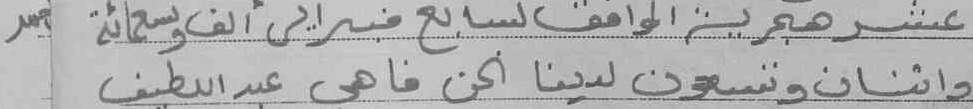 عشر هجرية الموافق لسابع فبراير ألف وتسعمائة
واثنان وتسعون لدينا نحن قاضي عبد اللطيف